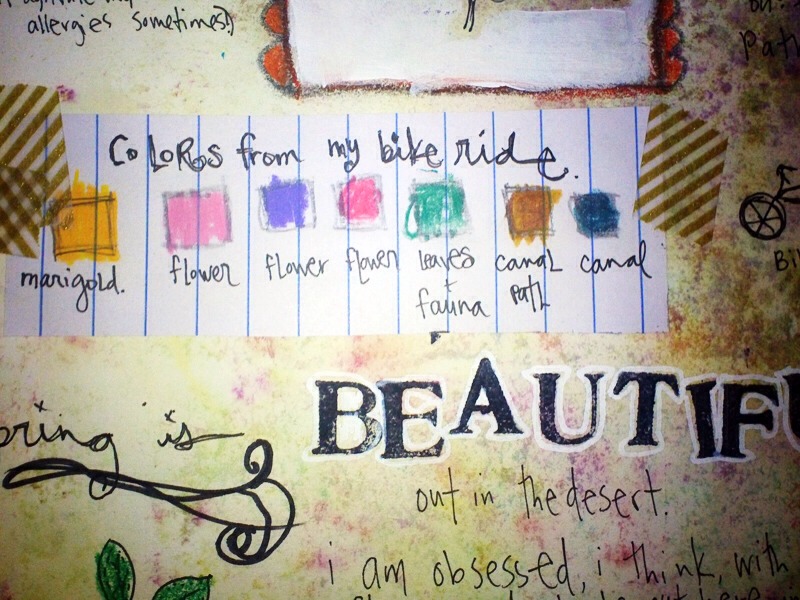 allergies sometimes!)
Colors from my bike ride.
marigold. flower flower flower leaves + fauna canal path canal
spring is
BEAUTIFU
out in the desert.
i am obsessed, i think, with